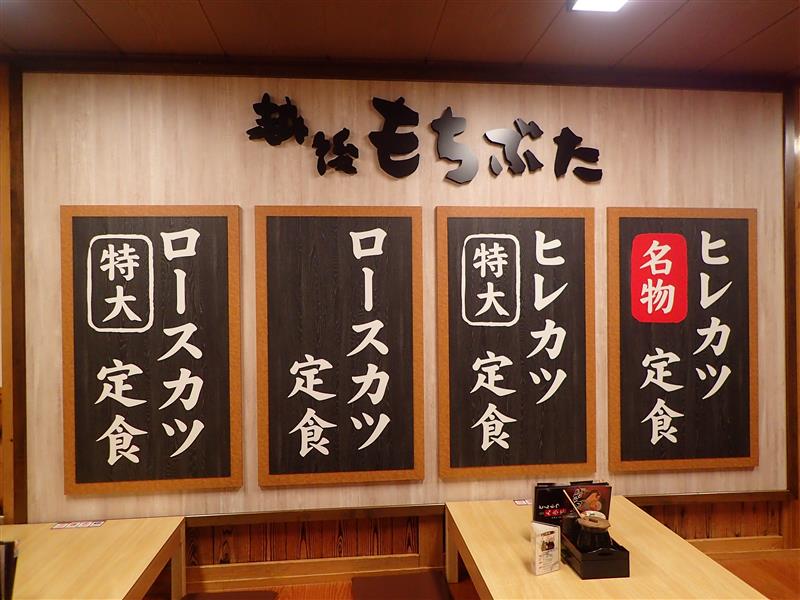 越後もちぶた
ヒレカツ
名物
定食
ヒレカツ
特大
定食
ロースカツ
定食
ロースカツ
特大
定食